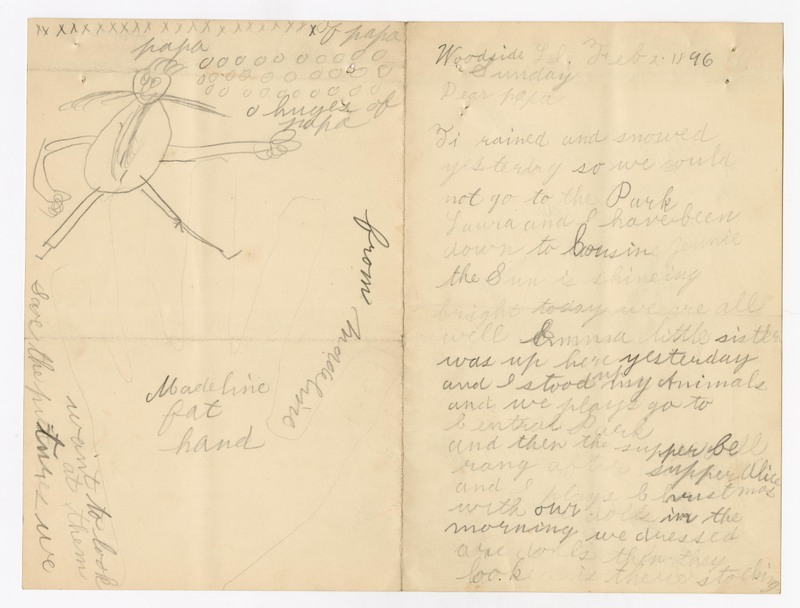 xxxxxxxxxxxxxxxxxxxxx of papa
papa
o huges of
papa
from Madeline
Madeline
fat
hand
Save the pictures we
want to look
at them
Woodside L.I. Feb 2. 1896
Sunday
Dear papa
rained and snowed
yesterday so we could
not go to the Park
Laura and I have been
down to Cousin Jennie
the Sun is shineing
bright today we are all
well Emma little sister
was up here yesterday
and I stood up my Animals
and we plays go to
Central Park
and then the supper bell
rang after supper Alice
and I plays Christmas
with our dolls in the
morning we dressed
are dolls then they
look is there stocking